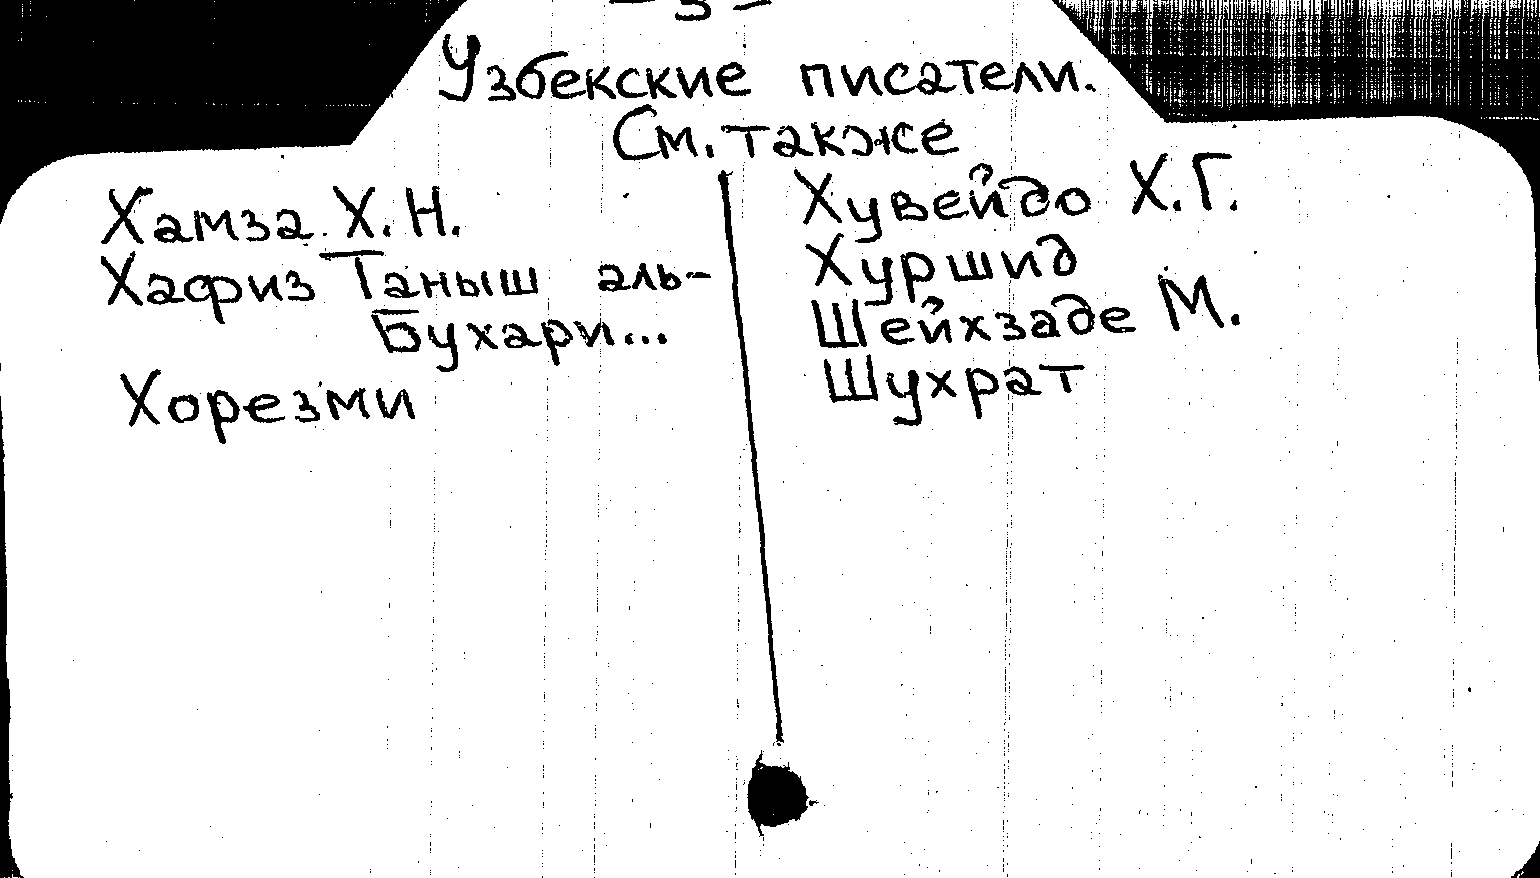 - 3 -
Узбекские писатели.
См. также
Хамза Х.Н.
Хафиз Таныш аль-
Бухари...
Хорезми
Хувейдо Х.Г.
Хуршид
Шейхзаде М.
Шухрат